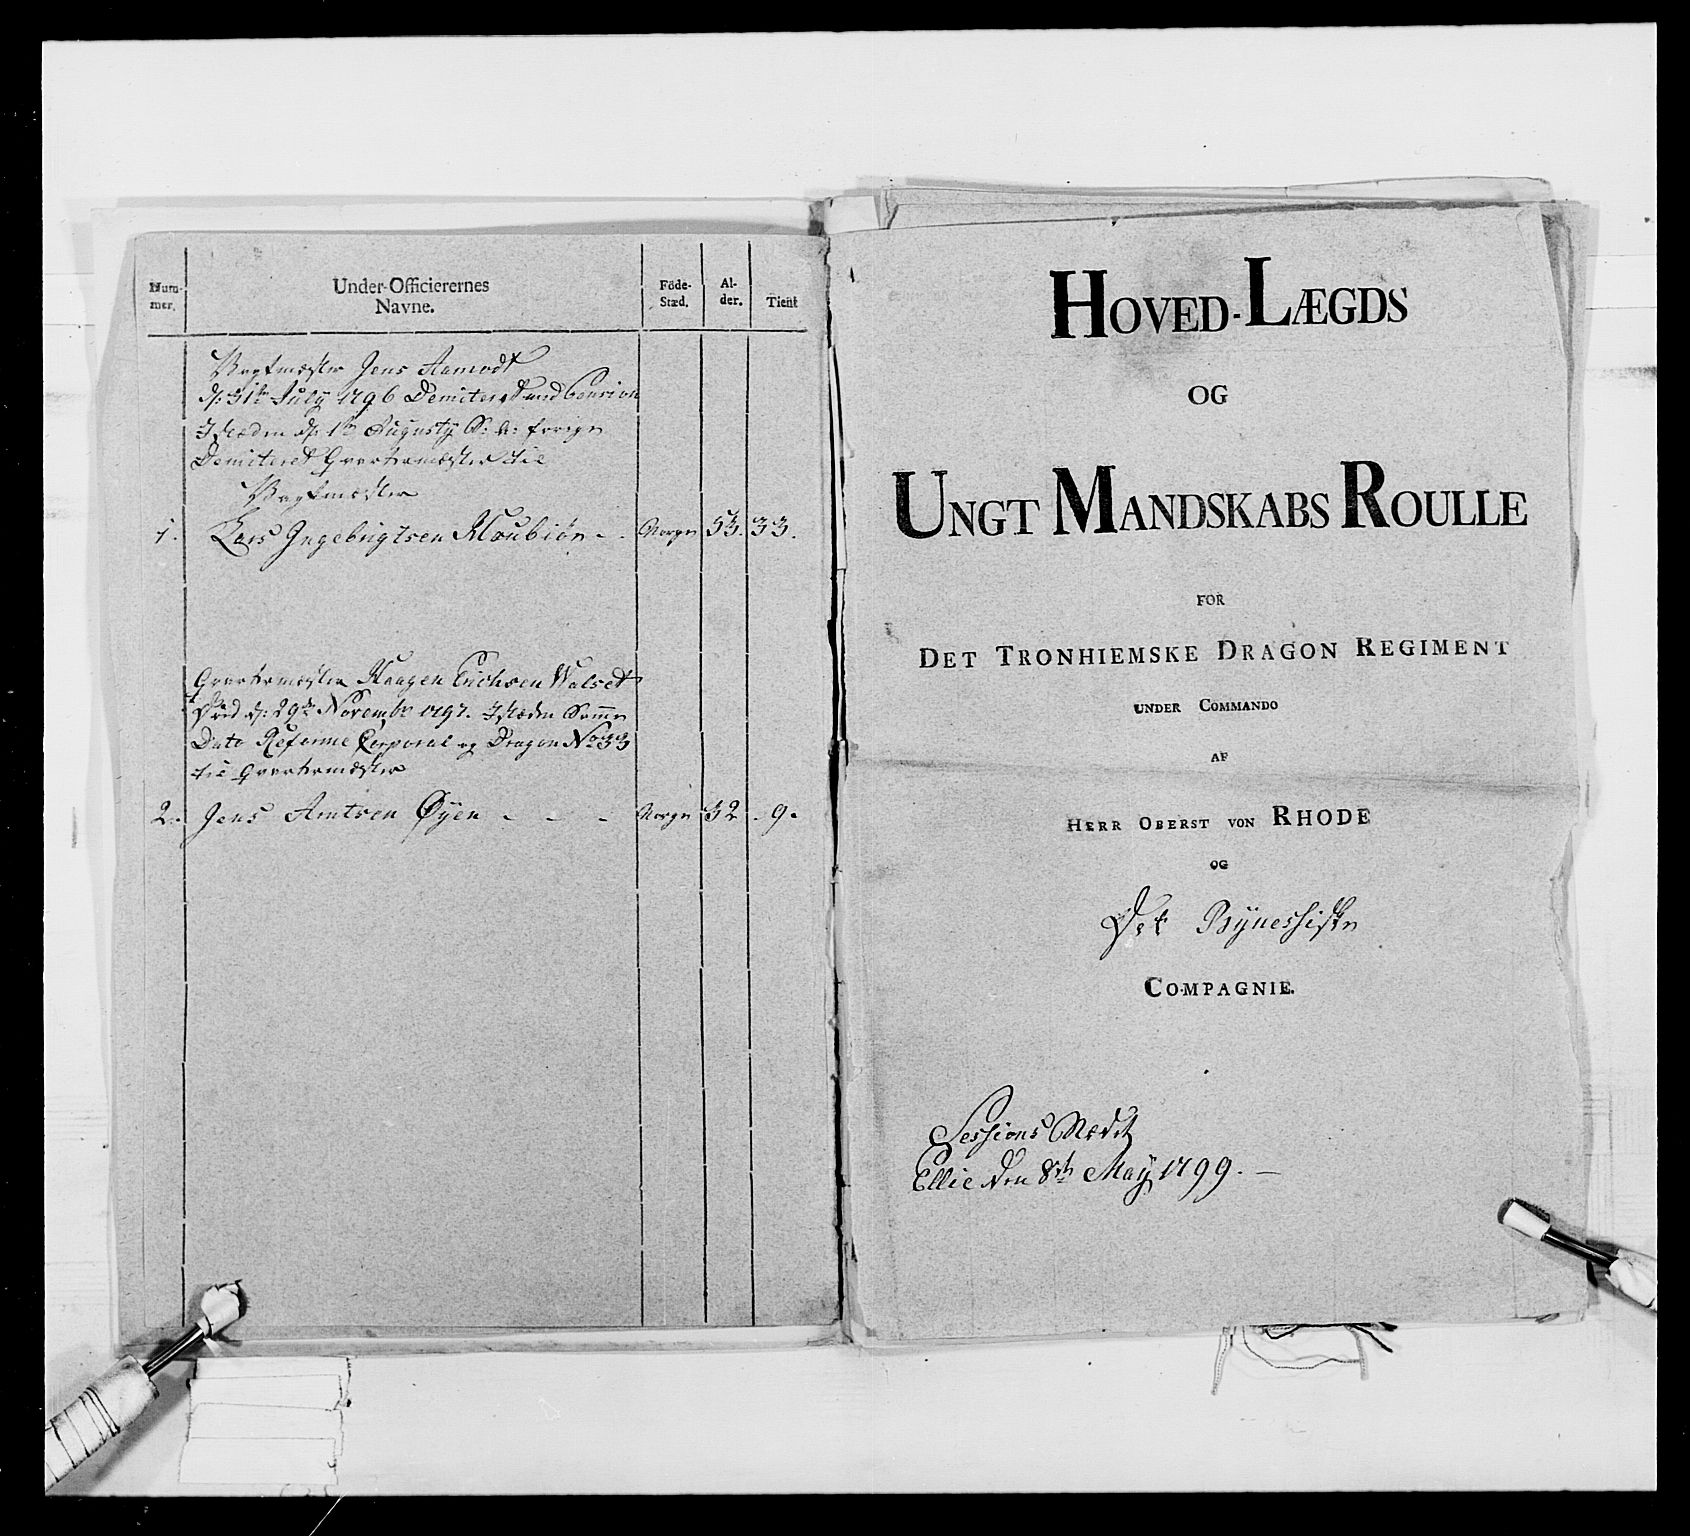 Num-
mer.
Under-Officierernes
Navne.
Föde-
Stæd.
Al-
der.
Tient
Vagtmæster Jens Aamodt
d: 31te July 1796 Demiteret med Pension
I Stæden d: 1te Augusty S: A: forige
Demiteret Qvartermæster til
Vagtmæster
1. Lars Ingebrigtsen Moubiön - - Norge 53. 33.
Qvartermæster Haagen Erichsen Walset
Död d: 29de Novembr 1797. I Stæden Samme
Dato Reforme Corporal og Dragon No 33
til Qvartermæster
2. Jens Arntsen Øyen - - - Norge 32. 9.
HOVED-LÆGDS
OG
UNGT MANDSKABS ROULLE
FOR
DET TRONHIEMSKE DRAGON REGIMENT
UNDER COMMANDO
AF
HERR OBERST VON RHODE
OG
Det Bynessiske
COMPAGNIE.
Sessions Stædet
Ellie den 8de May 1799. -